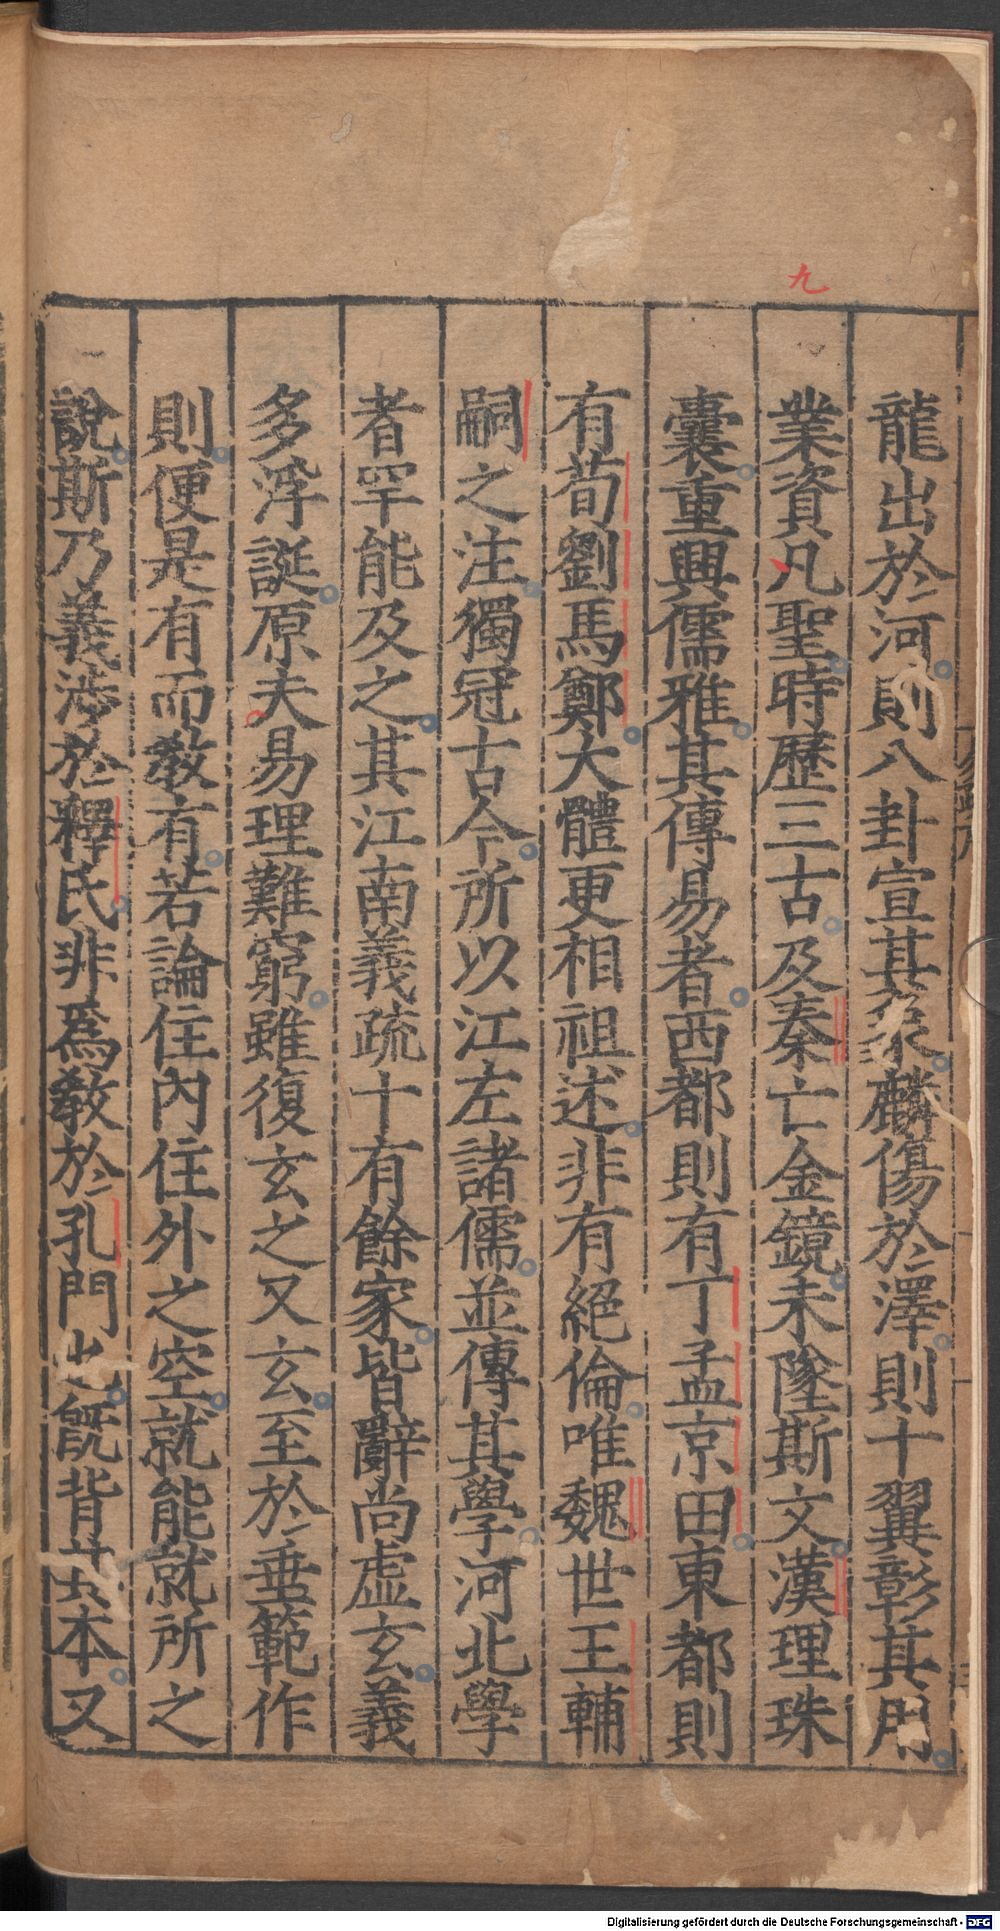 九
龍出於河則八卦宣其象麟傷於澤則十翼彰其用
業資凡聖時歷三古及秦亡金鏡未墜斯文漢理珠
囊重興儒雅其傳易者西都則有丁孟京田東都則
有荀劉馬鄭大體更相祖述非有絕倫唯魏世王輔
嗣之注獨冠古今所以江左諸儒並傳其學河北學
者罕能及之其江南義疏十有餘家皆辭尚虛玄義
多浮誕原夫易理難窮雖復玄之又玄至於垂範作
則便是有而教有若論住內住外之空就能就所之
說斯乃義涉於釋氏非爲教於孔門也既背其本又
Digitalisierung gefördert durch die Deutsche Forschungsgemeinschaft - DFG